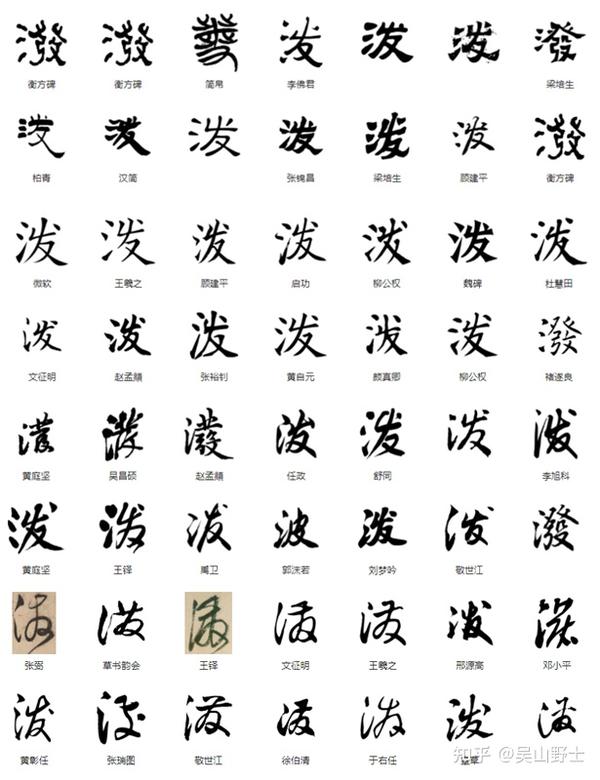 潑 潑 潑 泼 泼 泼 潑
衡方碑 衡方碑 简帛 李佛君 梁培生
泼 泼 泼 泼 泼 泼 潑
柏青 汉简 张锦昌 梁培生 顾建平 衡方碑
泼 泼 泼 泼 泼 泼 泼
微软 王羲之 顾建平 启功 柳公权 魏碑 杜慧田
泼 泼 泼 泼 泼 泼 潑
文征明 赵孟頫 张裕钊 黄自元 颜真卿 柳公权 褚遂良
潑 潑 潑 泼 泼 泼 泼
黄庭坚 吴昌硕 赵孟頫 任政 舒同 李旭科
泼 泼 泼 泼 泼 泼 潑
黄庭坚 王铎 禹卫 郭沫若 刘梦吟 敬世江
泼 泼 泼 泼 泼 泼 泼
张弼 草书韵会 王铎 文征明 王羲之 邢源高 邓小平
泼 泼 泼 泼 泼 泼 泼
黄彰任 张瑞图 敬世江 徐伯清 于右任
知乎 @吴山野士